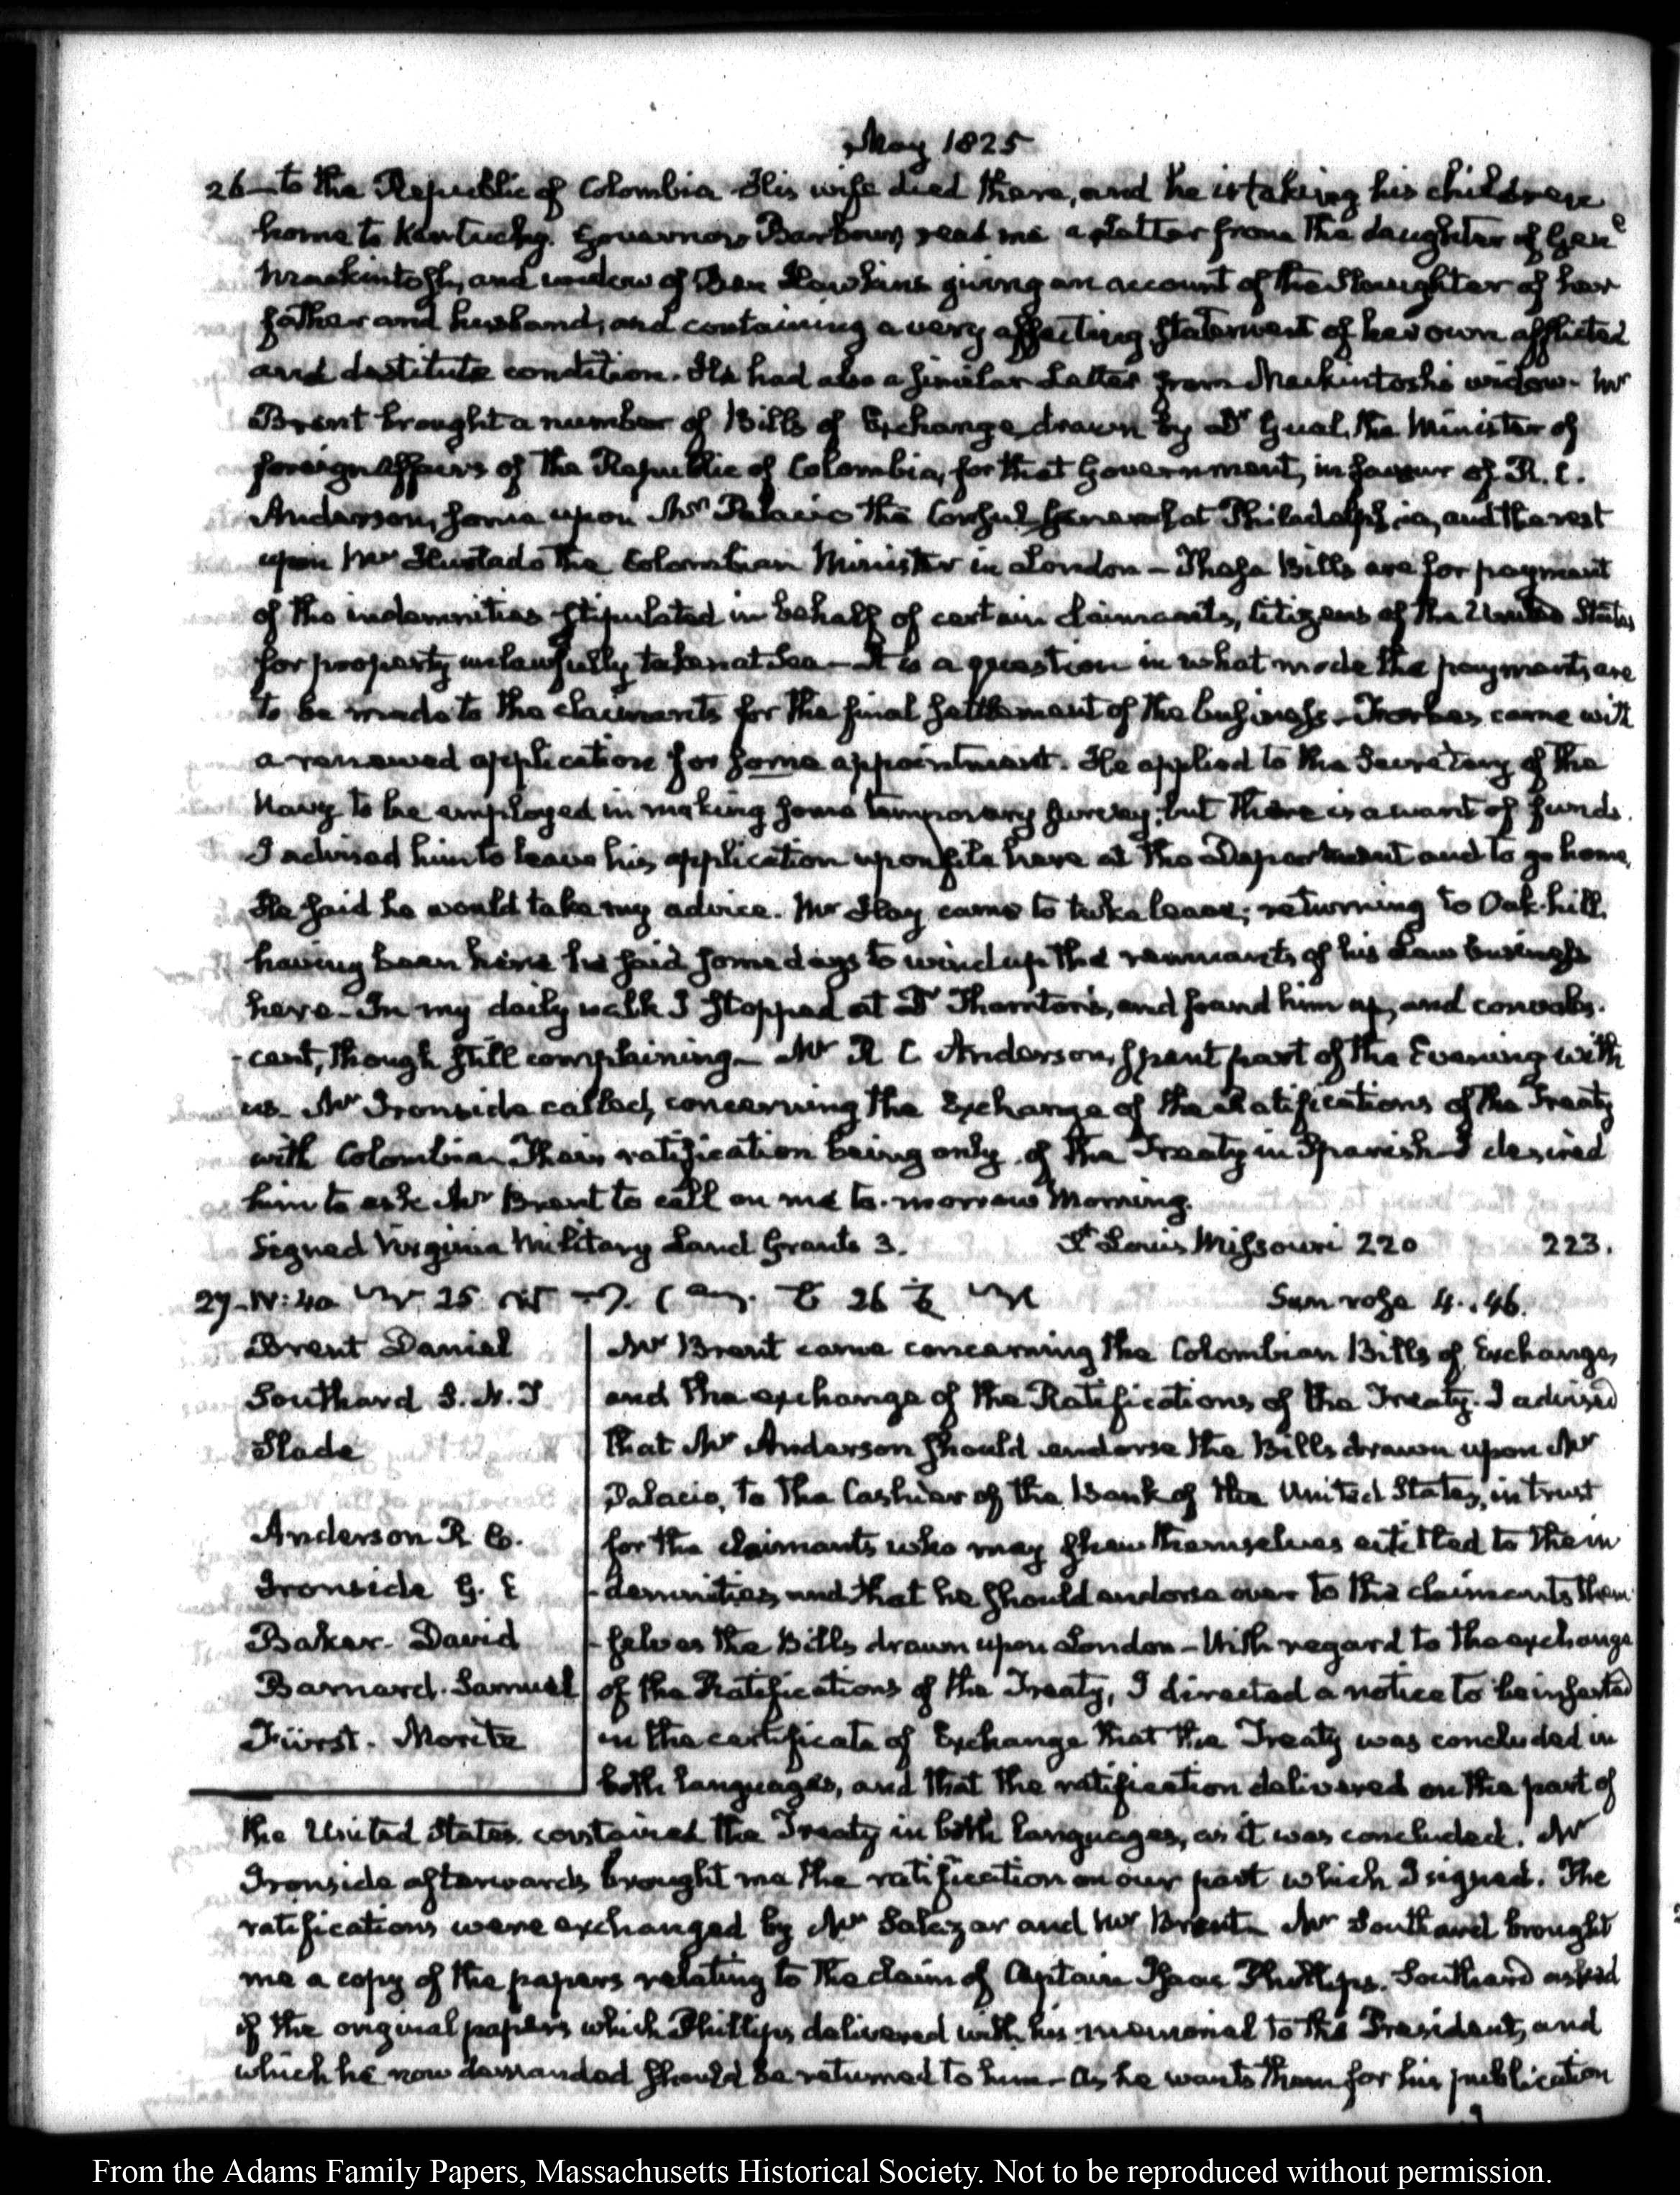 May 1825
26 — to the Republic of Colombia. His wife died there, and he is taking his children
home to Kentucky. Governor Barbour, read me a Letter from the daughter of Genl
Mackintosh, and widow of Ben Hawkins giving an account of the slaughter of her
father and husband, and containing a very affecting statement of her own afflicted
and destitute condition. He had also a similar Letter from Mackintosh's widow - Mr
Brent brought a number of Bills of Exchange, drawn by Dr Gual, the Minister of
foreign Affairs of the Republic of Colombia, for that Government, in favour of R. C.
Anderson, some upon Mr Palacio the Consul General at Philadelphia, and the rest
upon Mr Hurtado the Colombian Minister in London — These Bills are for payment
of the indemnities stipulated in behalf of certain claimants, Citizens of the United States
for property unlawfully taken at Sea — It is a question in what mode the payments are
to be made to the claimants for the final settlement of the business - Forbes came with
a renewed application for some appointment. He applied to the Secretary of the
Navy to be employed in making some temporary survey, but there is a want of funds.
I advised him to leave his application upon file here at the Department and to go home.
He said he would take my advice. Mr Hay came to take leave; returning to Oak-hill,
having been here he said some days to wind up the remnants of his Law business
here - In my daily walk I stopped at Dr Thornton's, and found him up, and convales-
-cent, though still complaining — Mr R C Anderson, spent part of the Evening with
us - Mr Ironside called, concerning the Exchange of the Ratifications of the Treaty
with Colombia - Their ratification being only of the Treaty in Spanish - I desired
him to ask Mr Brent to call on me to-morrow Morning.
Signed Virginia Military Land Grants 3. St Louis Missouri 220 223.
27 - IV:40 25 26 Sun rose 4..46.
Brent Daniel
Southard S. L.
Slade
Anderson R C.
Ironside G. E
Baker - David
Barnard. Samuel
Fürst. Moritz
Mr Brent came concerning the Colombian Bills of Exchange,
and the exchange of the Ratifications of the Treaty. I advised
that Mr Anderson should endorse the Bills drawn upon Mr
Palacio, to the Cashier of the Bank of the United States, in trust
for the claimants who may shew themselves entitled to the in
-demnities, and that he should endorse over to the claimants them
-selves the Bills drawn upon London — With regard to the exchange
of the Ratifications of the Treaty, I directed a notice to be inserted
in the certificate of Exchange that the Treaty was concluded in
both languages, and that the ratification delivered on the part of
the United States contained the Treaty in both languages, as it was concluded. Mr
Ironside afterwards brought me the ratification on our part which I signed. The
ratifications were exchanged by Mr Salazar and Mr Brent - Mr Southard brought
me a copy of the papers relating to the claim of Captain Isaac Phillips. Southard asked
if the original papers which Phillips delivered with his memorial to the President, and
which he now demanded should be returned to him - As he wants them for his publication
From the Adams Family Papers, Massachusetts Historical Society. Not to be reproduced without permission.